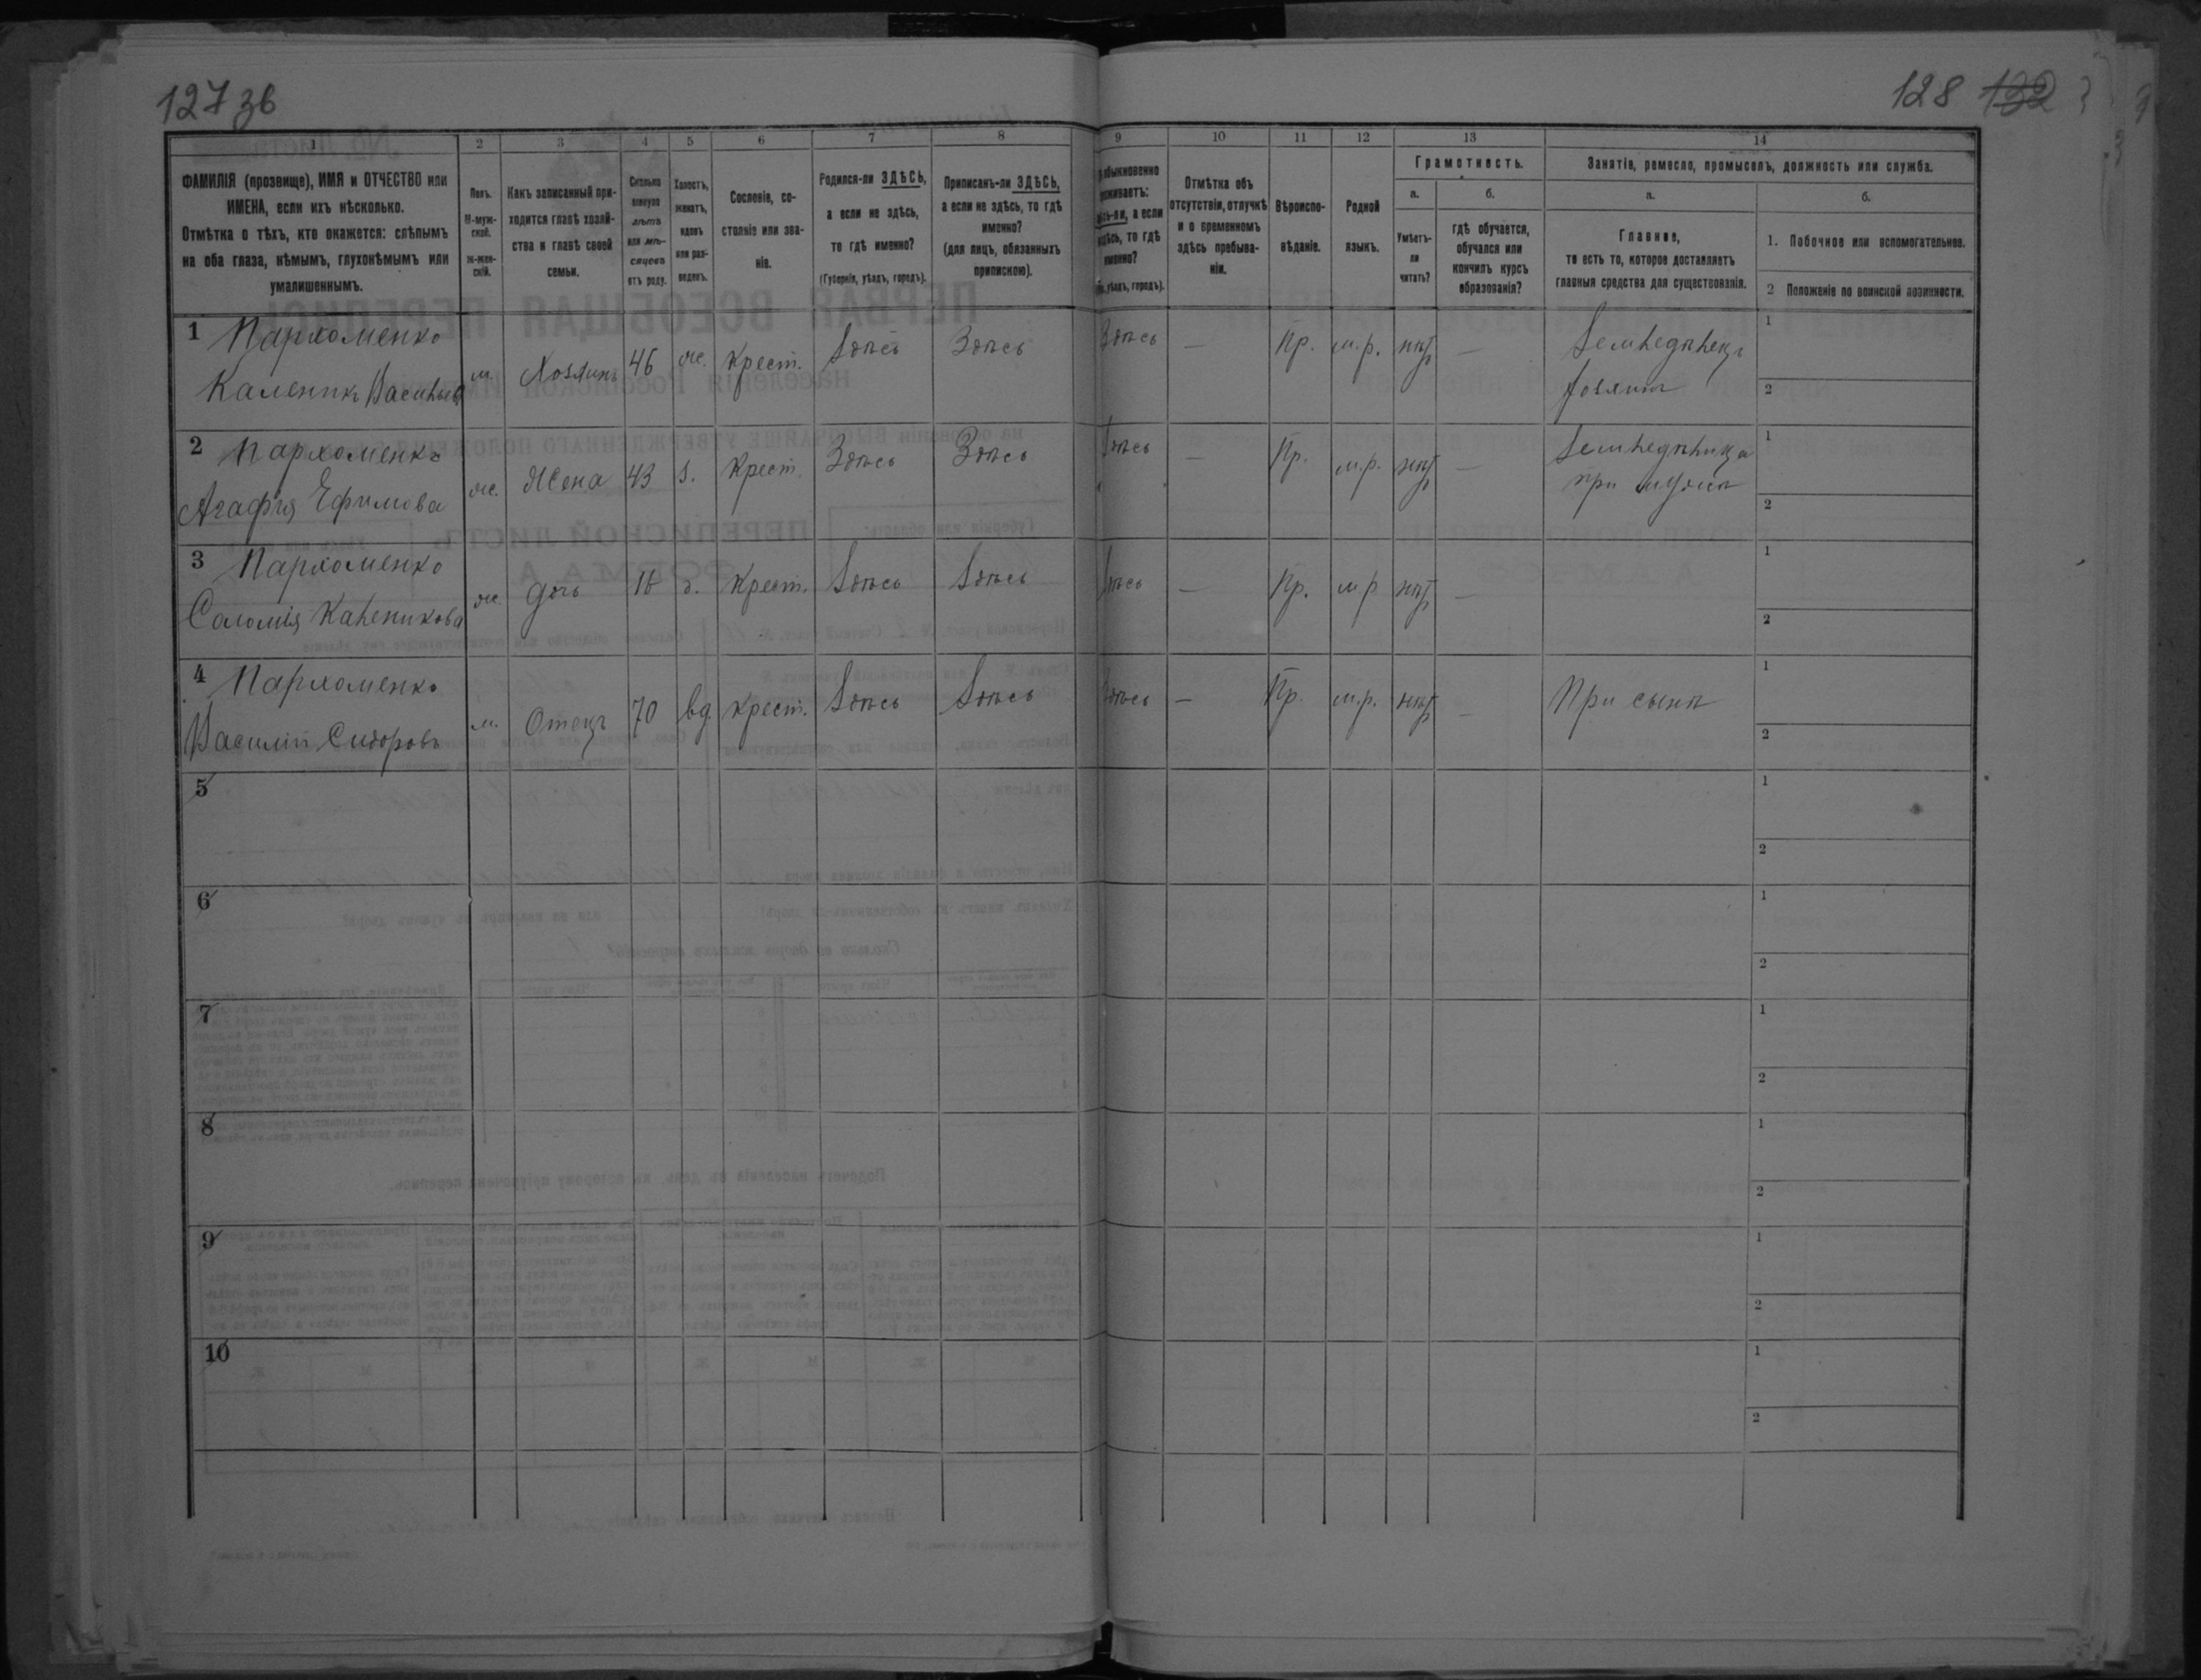 127 зв
128 132
1
2
3
4
5
6
7
8
9
10
11
12
13
14
ФАМИЛІЯ (прозвище), ИМЯ и ОТЧЕСТВО или
ИМЕНА, если ихъ нѣсколько.
Отмѣтка о тѣхъ, кто окажется: слѣпымъ
на оба глаза, нѣмымъ, глухонѣмымъ или
умалишеннымъ.
Полъ.
М-муж-
ской.
ж-жен-
скій.
Какъ записанный при-
ходится главѣ хозяй-
ства и главѣ своей
семьи.
Сколько
минуло
лѣтъ
или мѣ-
сяцевъ
отъ роду.
Холостъ,
женатъ,
вдовъ
или раз-
веденъ.
Сословіе, со-
стояніе или зва-
ніе.
Родился-ли ЗДѢСЬ,
а если не здѣсь,
то гдѣ именно?
(Губернія, уѣздъ, городъ).
Приписанъ-ли ЗДѢСЬ,
а если не здѣсь, то гдѣ
именно?
(для лицъ, обязанныхъ
припискою).
обыкновенно
а если
то гдѣ
именно?
уѣздъ, городъ).
Отмѣтка объ
отсутствіи, отлучкѣ
и о временномъ
здѣсь пребыва-
ніи.
Вѣроиспо-
вѣданіе.
Родной
языкъ.
Грамотность.
а.
Умѣетъ-
ли
читать?
б.
гдѣ обучается,
обучался или
кончилъ курсъ
образованія?
Занятіе, ремесло, промыселъ, должность или служба.
а.
Главное,
то есть то, которое доставляетъ
главныя средства для существованія.
б.
1. Побочное или вспомогательное.
2 Положеніе по воинской повинности.
1 Пархоменко
Каленикъ Васильевъ
м. Хозяинъ 46 ж. Крест. Здѣсь Здѣсь Здѣсь — Пр. м.р. нѣтъ —
Земледѣлецъ
хозяинъ
1
2
2 Пархоменко
Агафія Ефимова
ж. Жена 43 з. Крест. Здѣсь Здѣсь Здѣсь — Пр. м.р. нѣтъ —
Земледѣлица
при мужѣ
1
2
3 Пархоменко
Саломія Каленикова
ж. дочь д. Крест. Здѣсь Здѣсь Здѣсь — Пр. м.р нѣтъ —
1
2
4 Пархоменко
Василій Сидоровъ
м. Отецъ 70 вд. Крест. Здѣсь Здѣсь Здѣсь — Пр. м.р. нѣтъ —
При сынѣ
1
2
5
1
2
6
1
2
7
1
2
8
1
2
9
1
2
10
1
2